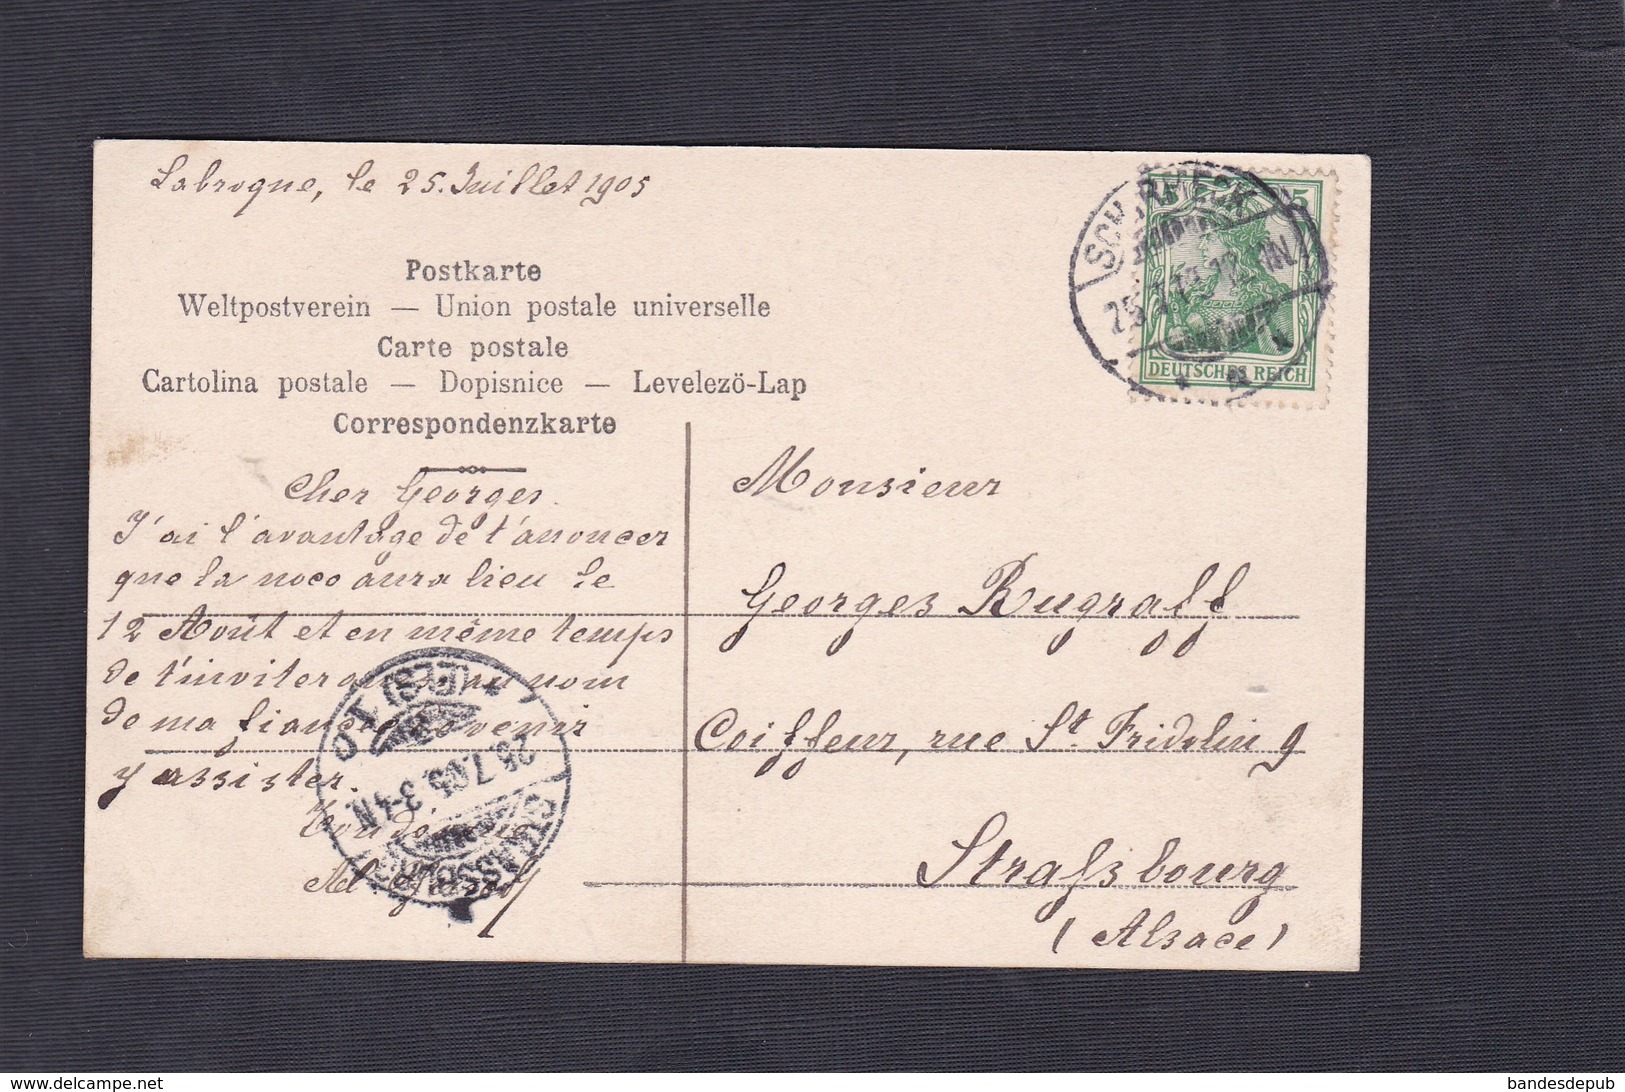 Labroque, le 25. Juillet 1905
Postkarte
Weltpostverein — Union postale universelle
Carte postale
Cartolina postale — Dopisnice — Levelezö-Lap
Correspondenzkarte
Cher Georges.
J'ai l'avantage de t'anoncer
que la noce aura lieu le
12 Août et en même temps
de t'inviter au nom
de ma fiancée venir
y assister.
Ad
SCHIRMECK
DEUTSCHES REICH
5
Monsieur
Georges Rugraff
Coiffeur, rue St. Fridolin 9
Strafsbourg
(Alsace)
STRASSBURG
25.7.05. 3-4N.
(ELS) 1
bandesdepub